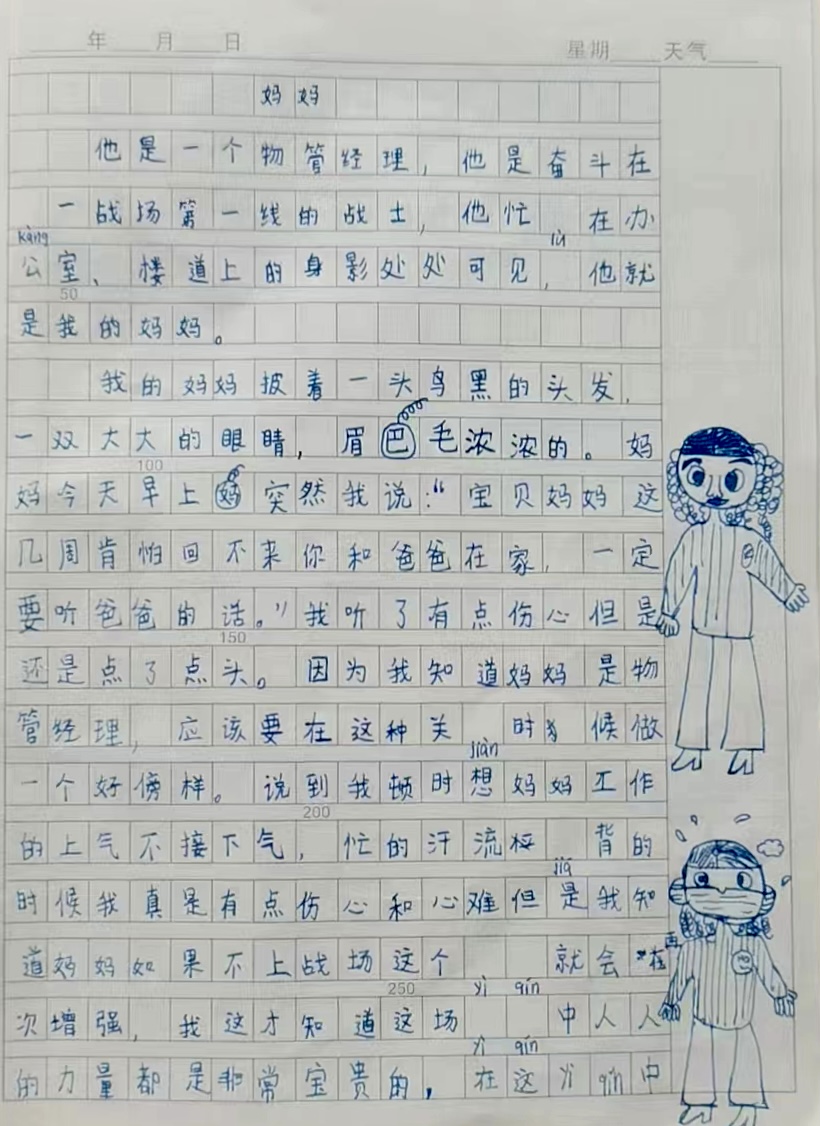 年 月 日 星期 天气
妈妈
他是一个物管经理，他是奋斗在
一战场第一线的战士，他忙 在办
kàng lù
公室、楼道上的身影处处可见，他就
50
是我的妈妈。
我的妈妈披着一头鸟黑的头发，
一双大大的眼睛，眉巴毛浓浓的。妈
100
妈今天早上妈突然我说：“宝贝妈妈这
几周肯怕回不来你和爸爸在家，一定
要听爸爸的话。”我听了有点伤心但是
150
还是点了点头。因为我知道妈妈是物
管经理，应该要在这种关 时 候做
jiàn
一个好傍样。说到我顿时想妈妈工作
200
的上气不接下气，忙的汗流 背的
jiā
时候我真是有点伤心和心难但是我知
道妈妈如果不上战场这个 就会在再
250 yì qín
次增强，我这才知道这场 中人人
yì qín
的力量都是非常宝贵的，在这yì qín中